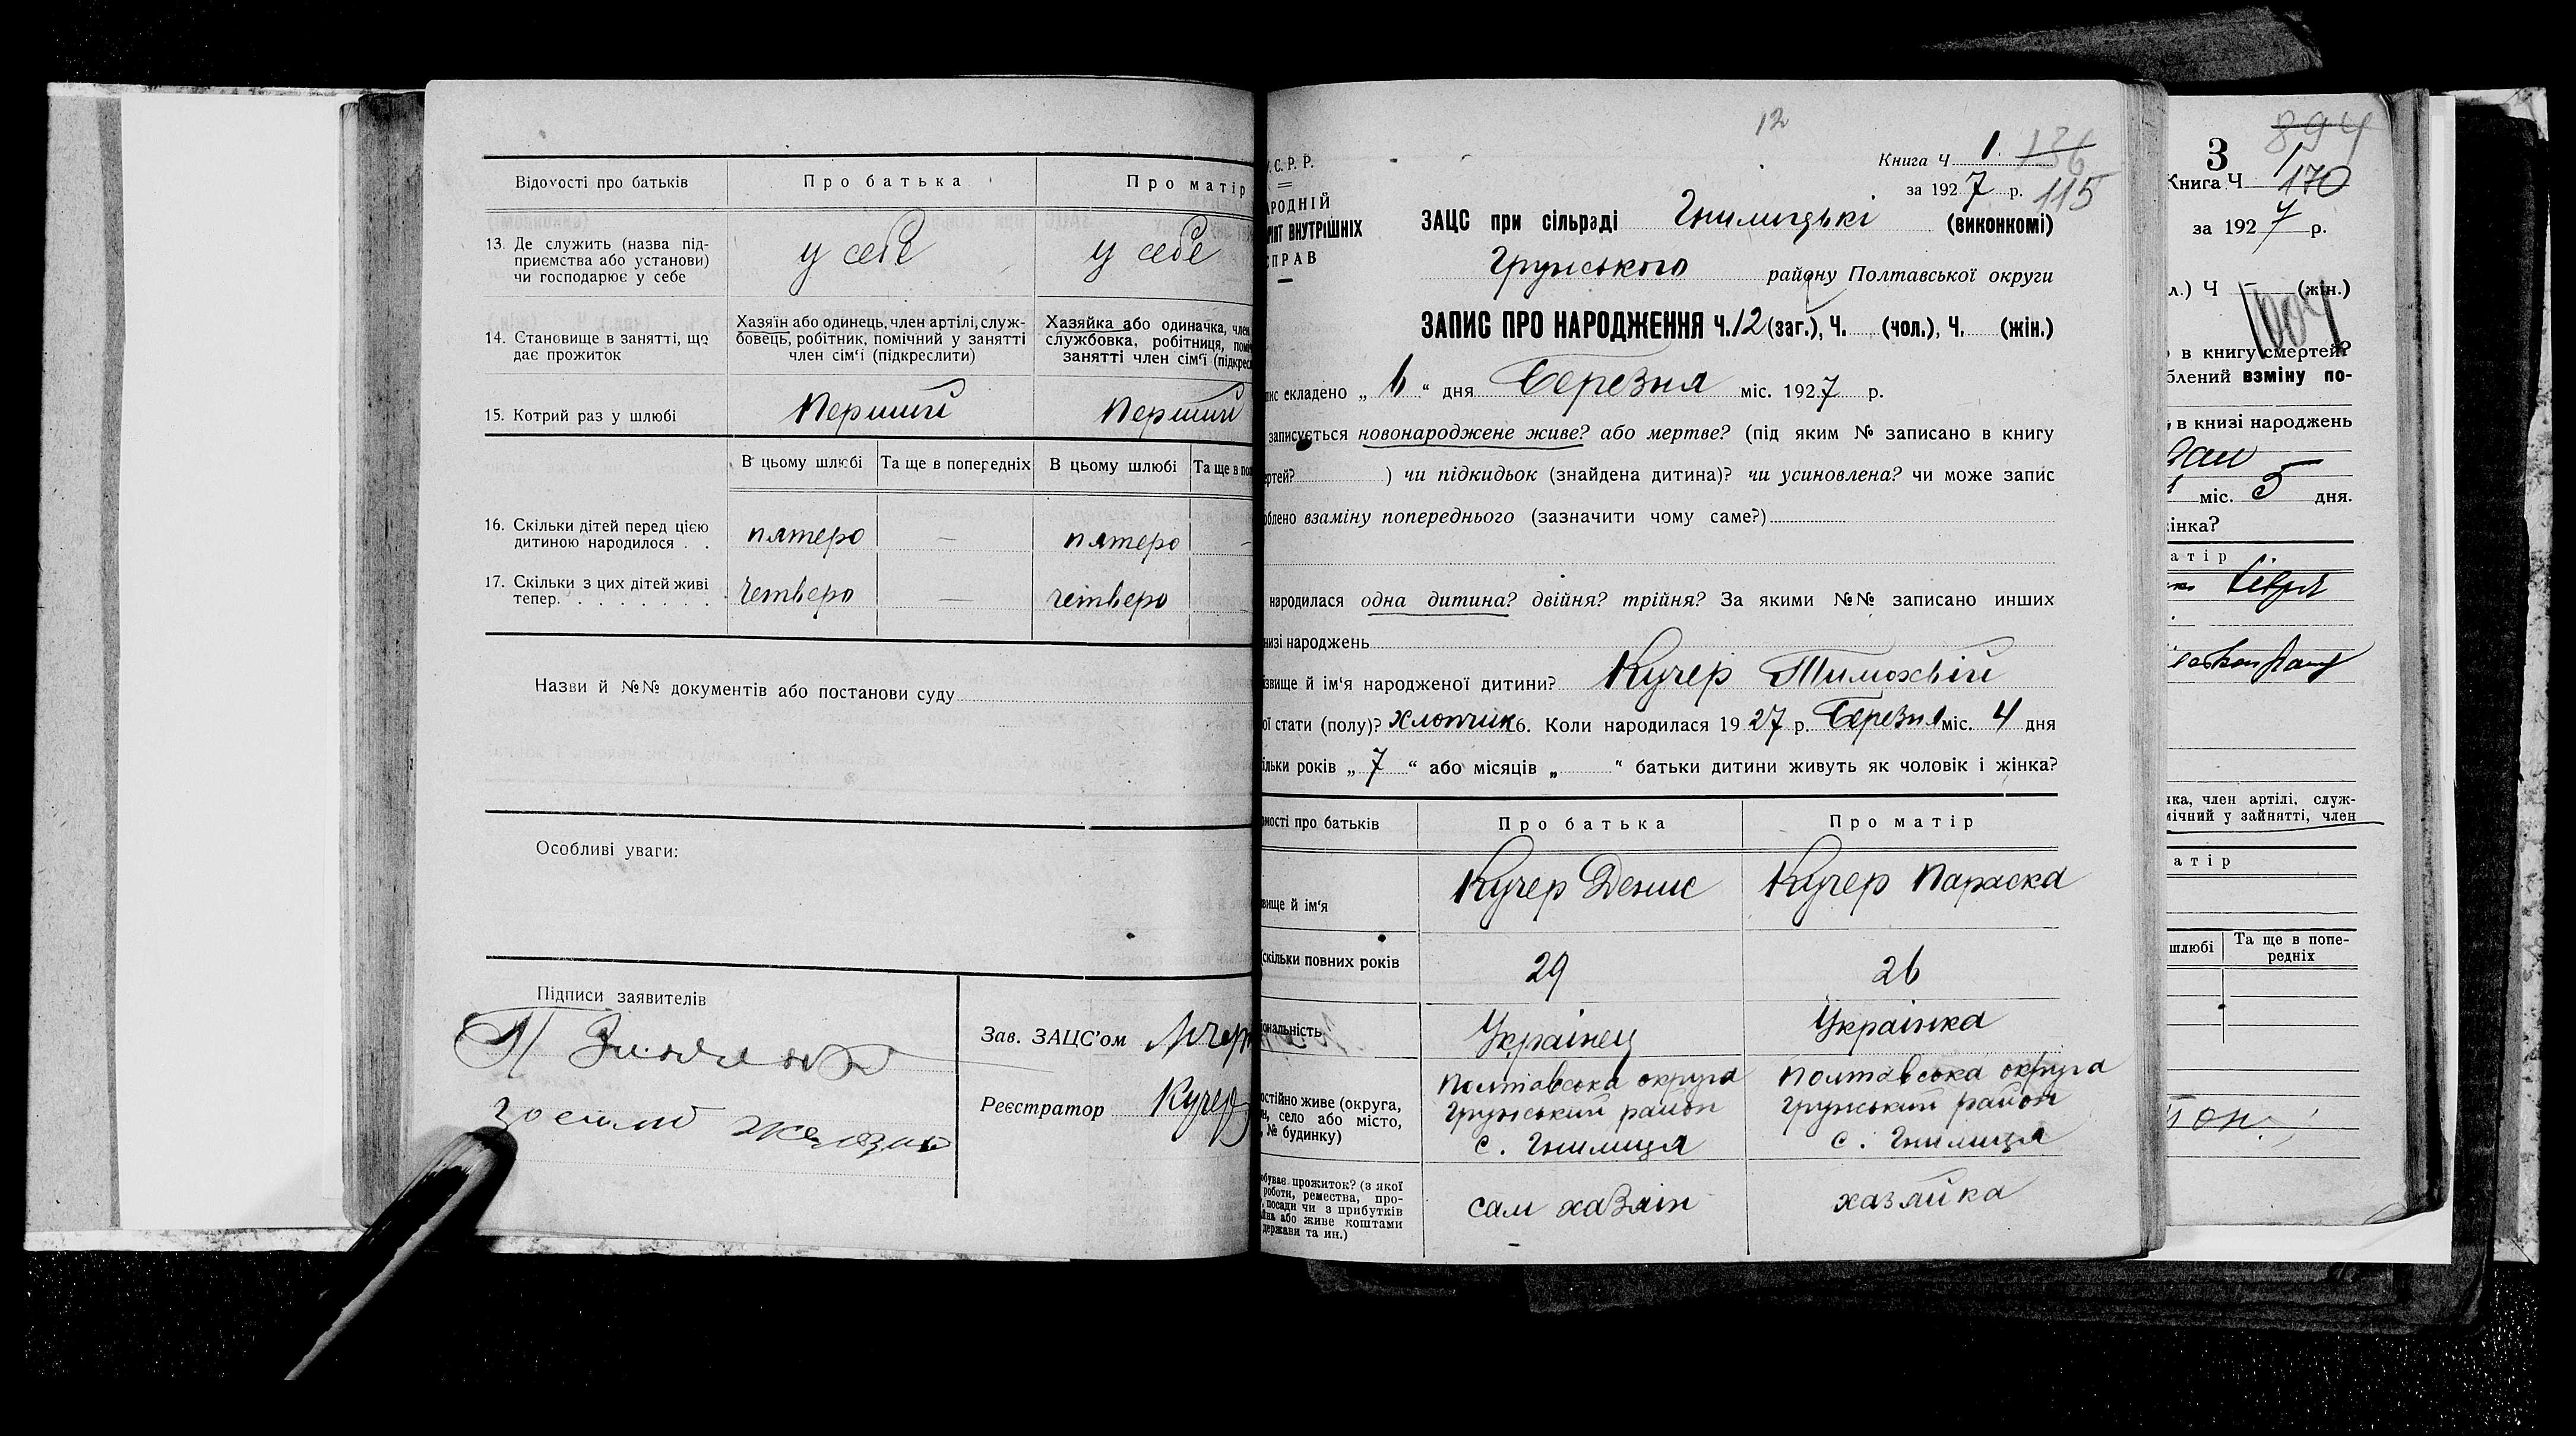 Відомості про батьків
Про батька
Про матір
13. Де служить (назва під-
приємства або установи)
чи господарює у себе
у себе
у себе
14. Становище в занятті, що
дає прожиток
Хазяїн або одинець, член артілі, служ-
бовець, робітник, помічний у занятті
член сім'ї (підкреслити)
Хазяйка або одиначка, член
службовка, робітниця, помі
занятті член сім'ї (підкрес
15. Котрий раз у шлюбі
Перший
Перший
В цьому шлюбі
Та ще в попередніх
В цьому шлюбі
Та ще в поп
16. Скільки дітей перед цією
дитиною народилося . .
пятеро
—
пятеро
—
17. Скільки з цих дітей живі
тепер. . . . . . . .
четверо
—
четверо
Назви й №№ документів або постанови суду
Особливі уваги:
Підписи заявителів
Зав. ЗАЦС'ом
Реєстратор Кучер
12
С. Р. Р.
РОДНІЙ
ВНУТРІШНІХ
ПРАВ
Книга Ч 1. 136
за 1927 р. 115
ЗАЦС при сільраді Гнилицькі (виконкомі)
Грунського району Полтавської округи
ЗАПИС ПРО НАРОДЖЕННЯ Ч. 12 (заг.), Ч. (чол.), Ч. (жін.)
пис складено „ 6 " дня Березня міс. 1927 р.
записується новонароджене живе? або мертве? (під яким № записано в книгу
ертей? ) чи підкидьок (знайдена дитина)? чи усиновлена? чи може запис
облено взаміну попереднього (зазначити чому саме?)
народилася одна дитина? двійня? трійня? За якими №№ записано инших
низі народжень
звище й ім'я народженої дитини? Кучер Тимохвій
ої стати (полу)? хлопчик 6. Коли народилася 1927 р. Березня міс. 4 дня
ільки років „ 7 " або місяців „ " батьки дитини живуть як чоловік і жінка?
омості про батьків
Про батька
Про матір
вище й ім'я
Кучер Денис
Кучер Параска
скільки повних років
29
26
іональність
Українец
Українка
остійно живе (округа,
н, село або місто,
№ будинку)
Полтавська округа
Грунський район
с. Гнилиця
Полтавська округа
Грунський район
с. Гнилиця
обуває прожиток? (з якої
роботи, ремества, про-
посади чи з прибутків
йна або живе коштами
держави та ин.)
сам хазяїн
хазяйка
894
3
Книга Ч 1
170
за 1927 р.
л.) Ч (жін.)
1004
в книгу смертей?
блений взміну по-
в книзі народжень
міс. 5 дня.
інка?
атір
нка, член артілі, служ-
мічний у зайнятті, член
атір
шлюбі
Та ще в попе-
редніх